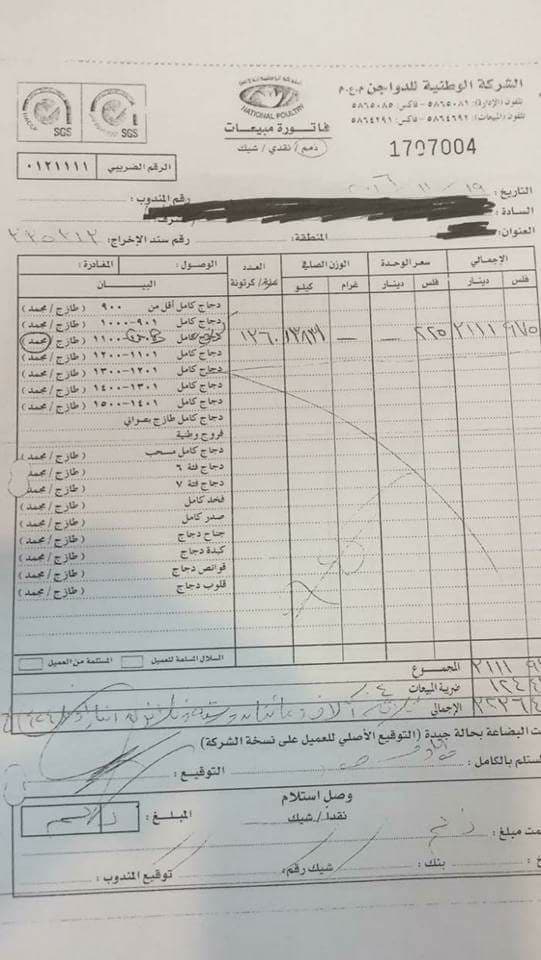 الشركة الوطنية للدواجن م.ع.م
تلفون (الإدارة): ٥٨٦٥٠٨١ - فاكس: ٥٨٦٥٠٨٥
تلفون (المبيعات): ٥٨٦٤٦٩١ - فاكس: ٥٨٦٤٢٩١
NATIONAL POULTRY
فاتورة مبيعات
ذمم / نقدي / شيك
HACCP
SGS
SGS
1707004
الرقم الضريبي ٠١٢١١١١
التاريخ: ١٩ / ١١ / ٢٠١٦
رقم المندوب:
السادة:
العنوان: المنطقة: رقم سند الإخراج:
الإجمالي سعر الوحدة الوزن الصافي العدد الوصول: المغادرة:
فلس دينار فلس دينار غرام كيلو علبة/كرتونة البيـــــان
دجاج كامل أقل من ٩٠٠ (طازج/مجمد)
دجاج كامل ٩٠١-١٠٠٠ (طازج/مجمد)
٩٧٥ ٢١١١ ٢٢٥ — — ١٢٦٠ كامل ١١٠٠ (طازج/مجمد)
دجاج كامل ١١٠١-١٢٠٠ (طازج/مجمد)
دجاج كامل ١٢٠١-١٣٠٠ (طازج/مجمد)
دجاج كامل ١٣٠١-١٤٠٠ (طازج/مجمد)
دجاج كامل ١٤٠١-١٥٠٠ (طازج/مجمد)
دجاج كامل طازج بصراني
فروج وطنية
دجاج كامل مسحب (طازج/مجمد)
دجاج فئة ٦ (طازج/مجمد)
دجاج فئة ٧ (طازج/مجمد)
فخذ كامل (طازج/مجمد)
صدر كامل (طازج/مجمد)
جناح دجاج (طازج/مجمد)
كبدة دجاج (طازج/مجمد)
قوانص دجاج (طازج/مجمد)
قلوب دجاج (طازج/مجمد)
السلال المسلمة للعميل المستلمة من العميل
المجموع ٢١١١
ضريبة المبيعات
الإجمالي
ت البضاعة بحالة جيدة (التوقيع الأصلي للعميل على نسخة الشركة)
ستلم بالكامل: التوقيع:
وصل استلام
نقدا/شيك
المبلغ:
مت مبلغ:
بنك: شيك رقم: توقيع المندوب: